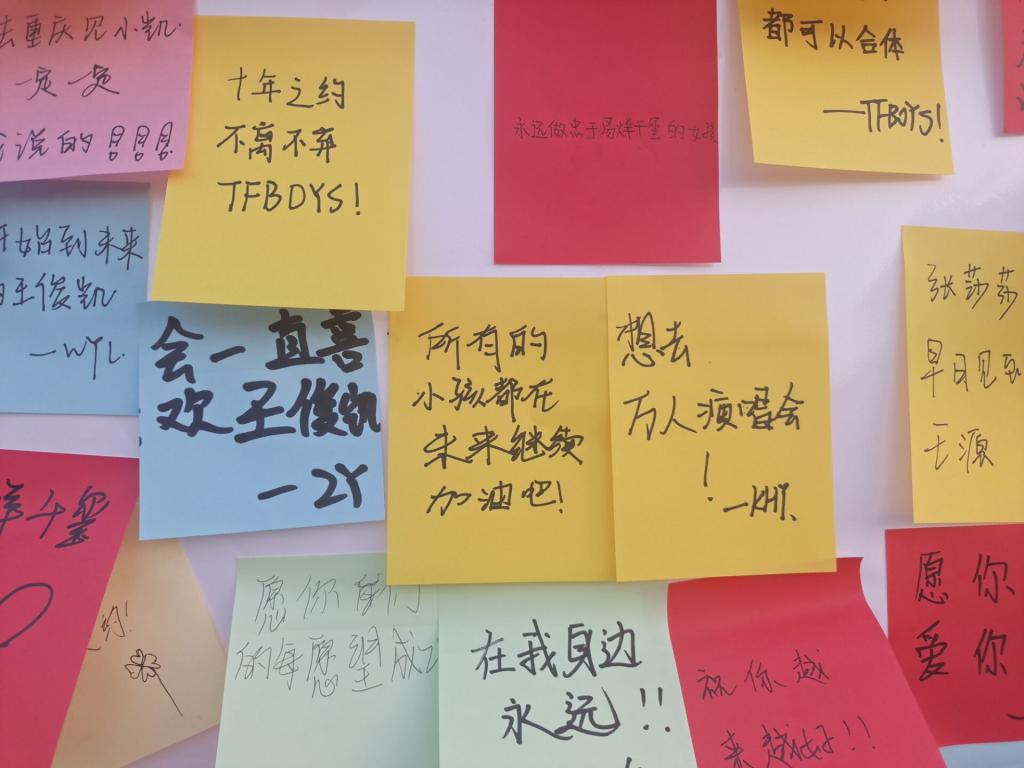 去重庆见小凯
一定一定
说的!!!
十年之约
不离不弃
TFBOYS!
永远做忠于易烊千玺的女孩
都可以合体
—TFBOYS!
开始到未来
王俊凯
—WYL.
会一直喜
欢王俊凯
—ZY
所有的
小孩都在
未来继续
加油吧!
想去
万人演唱会
!
—KHY.
张莎莎
早日见到
王源
千玺
愿你
的每愿望成
在我身边
永远!!
祝你越
来越好!!
愿你
爱你